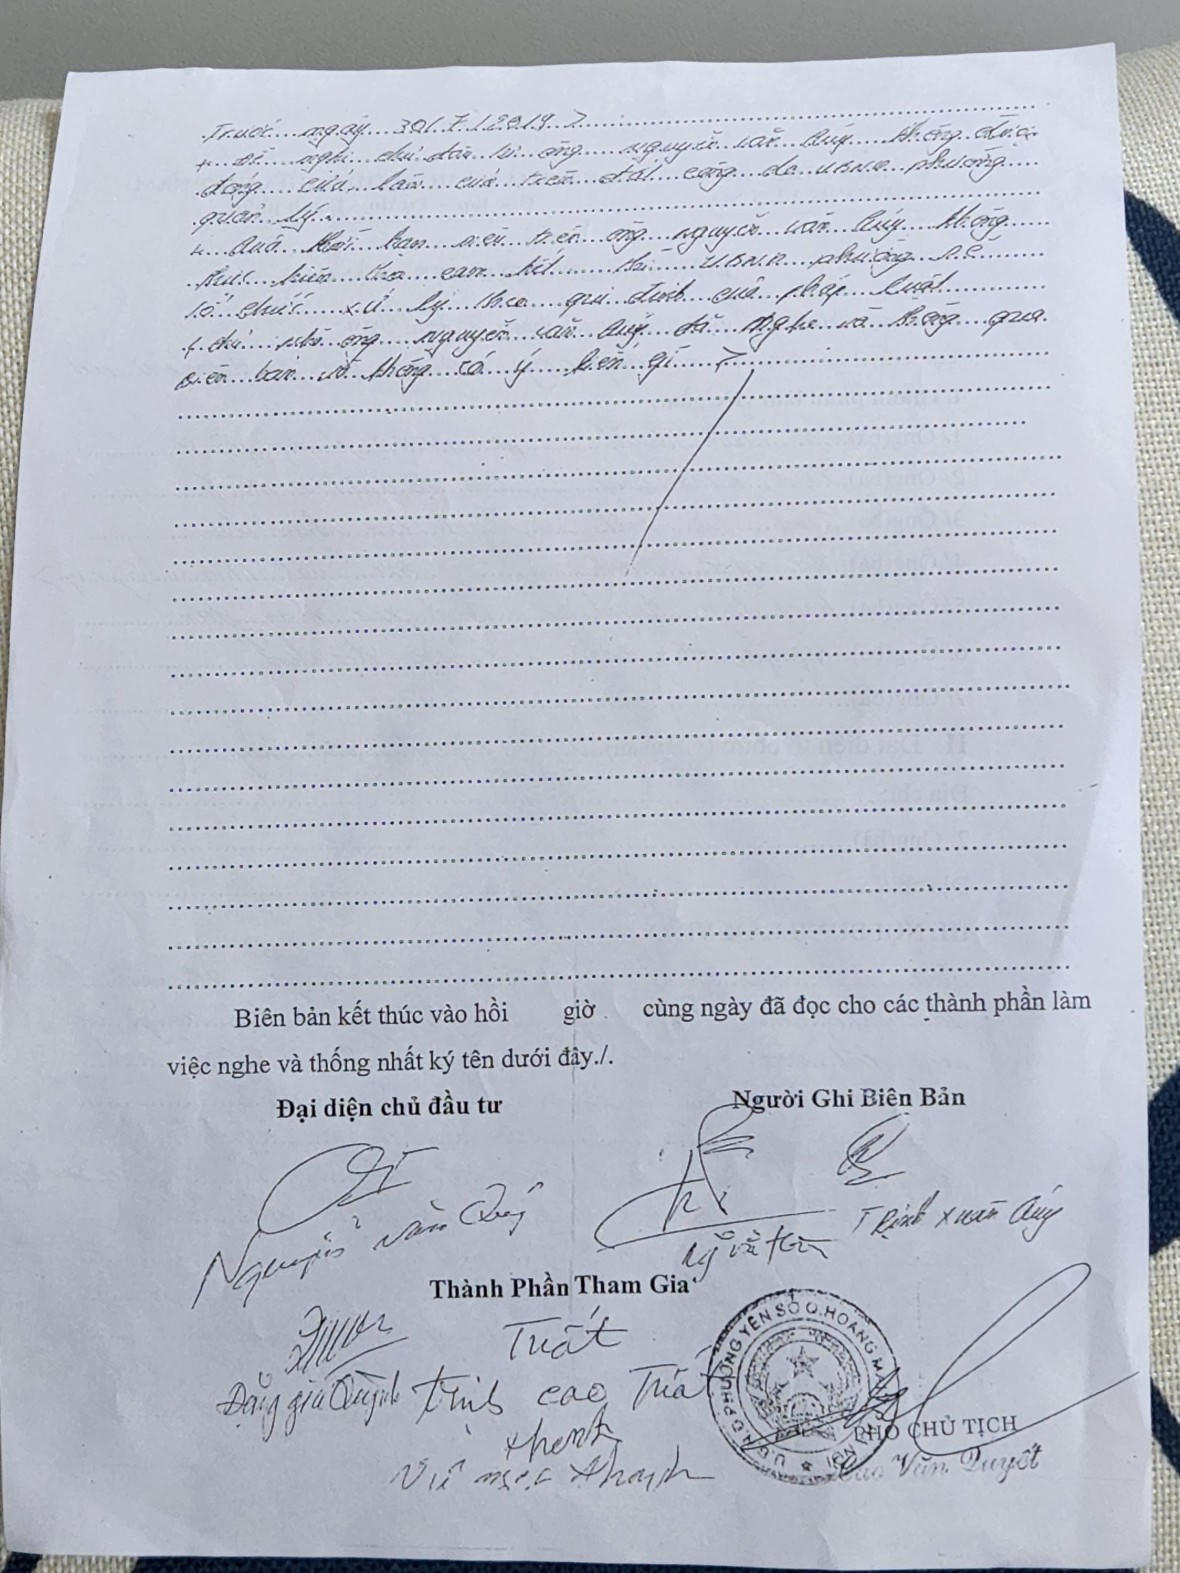 Trước ngày 30/7/2019
+ Đề nghị chủ đầu tư ông Nguyễn Văn Quý không được
đóng cửa lấn của trên đất công do UBND phường
quản lý
+ Quá thời hạn nêu trên ông Nguyễn Văn Quý không
thực hiện theo cam kết thì UBND phường sẽ
tổ chức xử lý theo qui định của pháp luật
+ chủ nhà ông Nguyễn Văn Quý đã nghe và thông qua
biên bản và không có ý kiến gì
Biên bản kết thúc vào hồi giờ cùng ngày đã đọc cho các thành phần làm
việc nghe và thống nhất ký tên dưới đây./.
Đại diện chủ đầu tư
Người Ghi Biên Bản
Nguyễn Văn Quý
Trịnh Xuân Quý
Thành Phần Tham Gia
Trất
Đặng Gia Quỳnh Trịnh Cao
U.B.N.D PHƯỜNG YÊN SỞ Q.HOÀNG MAI HÀ NỘI
PHÓ CHỦ TỊCH
Cao Văn Quyết